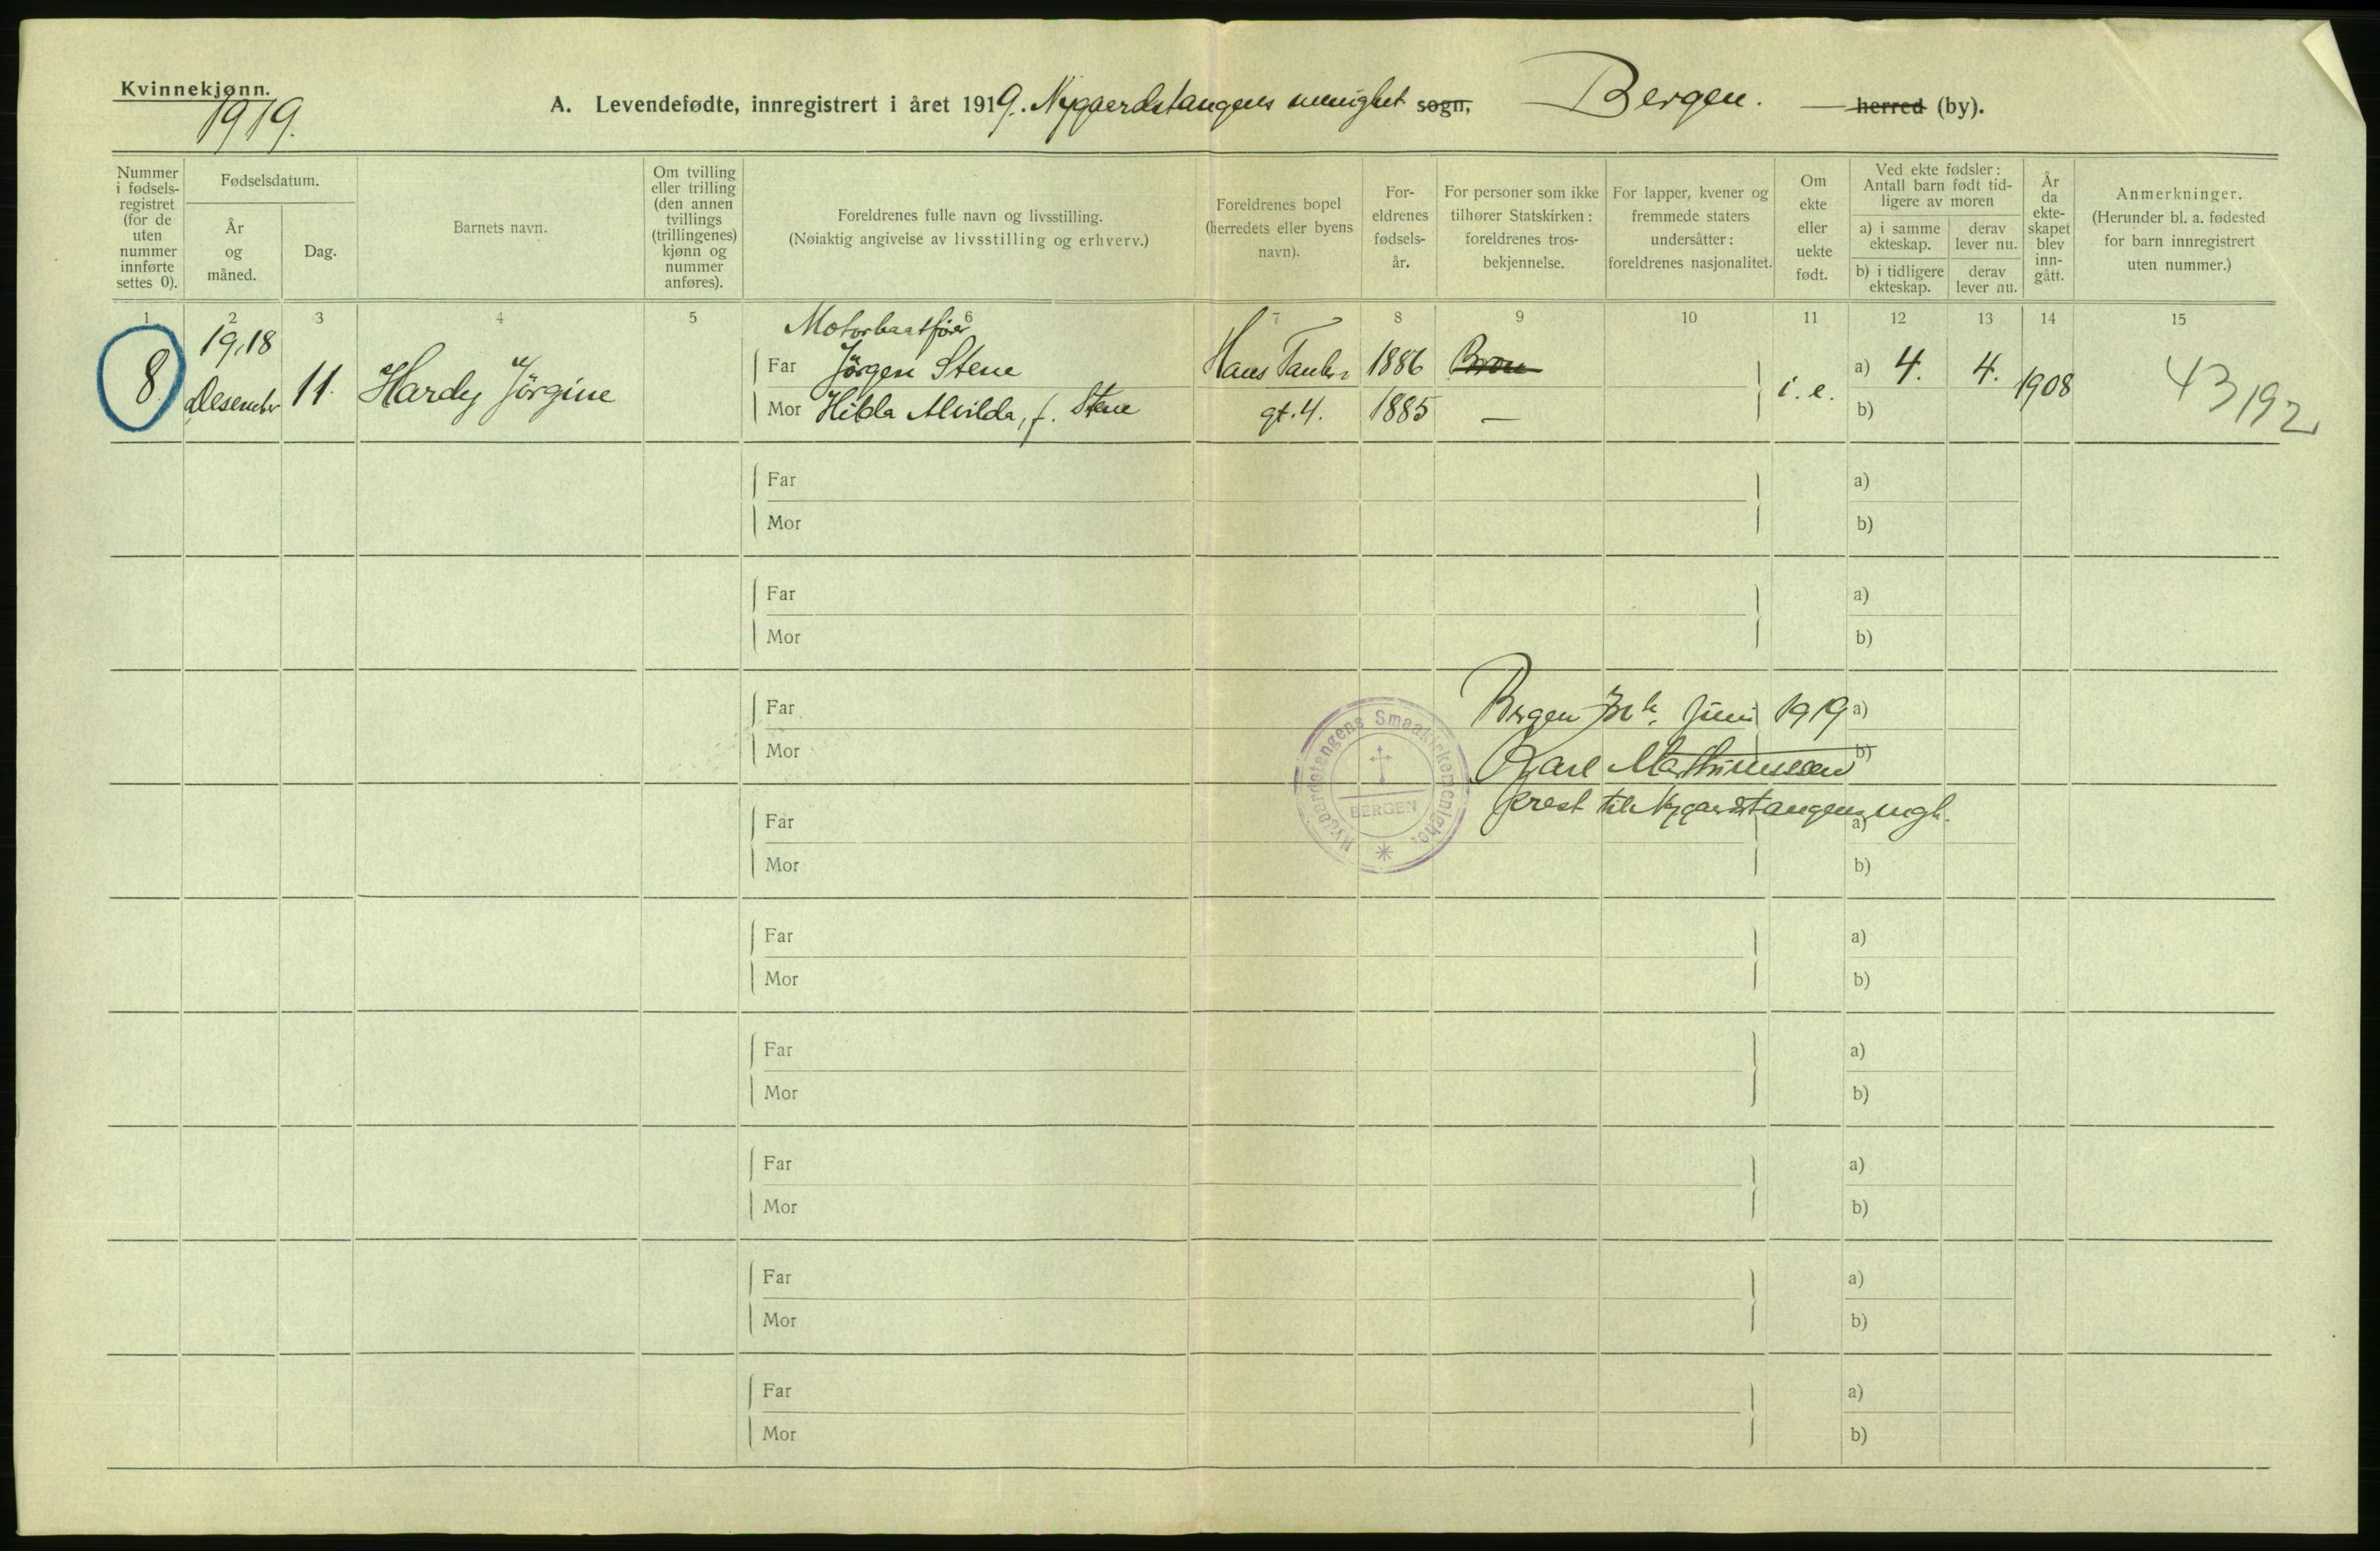 Kvinnekjønn.
1919.
A. Levendefødte, innregistrert i året 1919. Nygaardstangens menighet sogn, Bergen. herred (by).
Nummer i fødsels- registret (for de uten nummer innførte settes 0).
Fødselsdatum.
År og måned.
Dag.
Barnets navn.
Om tvilling eller trilling (den annen tvillings (trillingenes) kjønn og nummer anføres).
Foreldrenes fulle navn og livsstilling.
(Nøiaktig angivelse av livsstilling og erhverv.)
Foreldrenes bopel (herredets eller byens navn).
For- eldrenes fødsels- år.
For personer som ikke tilhører Statskirken: foreldrenes tros- bekjennelse.
For lapper, kvener og fremmede staters undersåtter: foreldrenes nasjonalitet.
Om ekte eller uekte født.
Ved ekte fødsler: Antall barn født tid- ligere av moren
a) i samme ekteskap.
derav lever nu.
b) i tidligere ekteskap.
derav lever nu.
År da ekte- skapet blev inn- gått.
Anmerkninger.
(Herunder bl. a. fødested for barn innregistrert uten nummer.)
1 2 3 4 5 6 7 8 9 10 11 12 13 14 15
8. 1918 Desember 11. Hardy Jörgine
Motorbaatfører
Far Jörgen Stene
Mor Hilda Alvilda, f. Stene
Hans Tanks
gt. 4.
1886
1885
—
i. e.
a) 4. 4.
b)
1908
43192
Far a)
Mor b)
Far a)
Mor b)
Far a)
Mor b)
Far a)
Mor b)
Far a)
Mor b)
Far a)
Mor b)
Far a)
Mor b)
Far a)
Mor b)
Far a)
Mor b)
Bergen Juni 1919
Karl Marthinussen
prest til Nygaardstangens mgh.
Nygaardstangens Smaakirkemenighet
BERGEN